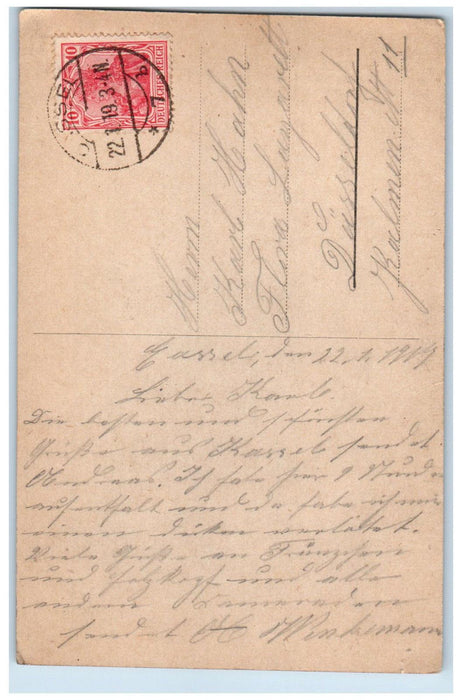 10
10
DEUTSCHES REICH
CASSEL
22.1.19. 3-4N.
* 1 b
Herrn
Karl Hahn
Flora Lazarett
Düsseldorf
11
Cassel, den 22.1.1919
Lieber Karl.
Die besten und schönsten
Grüße aus Kassel sendet
Andreas. Ich habe hier 9 Stunden
aufenthalt und da habe ich mir
einen
Viele Grüße an Fränzchen
und Holzkopf und alle
andern Kameraden
sendet A Winkemann